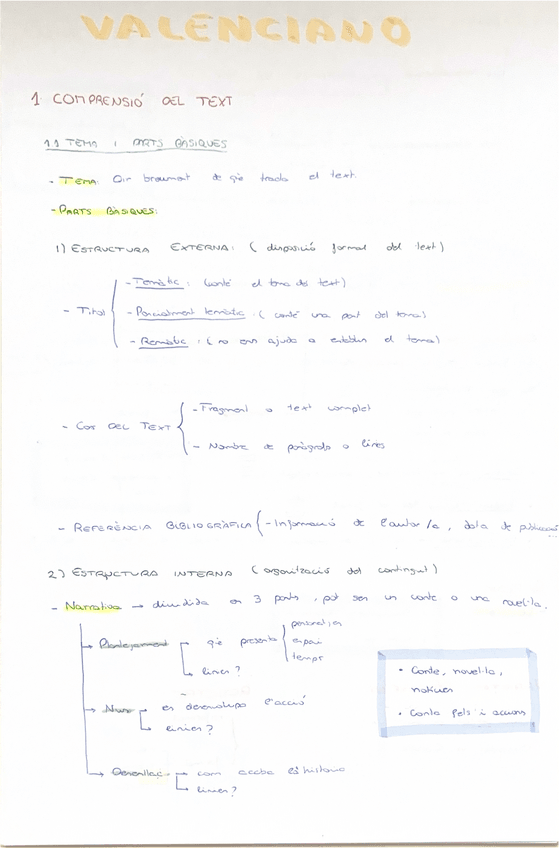 VALENCIANO
1 COMPRENSIÓ DEL TEXT
1.1 TEMA I PARTS BÀSIQUES
- TEMA: Dir breument de què tracta el text.
- PARTS BÀSIQUES:
1) ESTRUCTURA EXTERNA: (disposició formal del text)
- Títol
- Temàtic: (conté el tema del text)
- Parcialment temàtic: (conté una part del tema)
- Remàtic: (no ens ajuda a establir el tema)
- COS DEL TEXT
- Fragment o text complet
- Nombre de paràgrafs o línies
- REFERÈNCIA BIBLIOGRÀFICA (- Informació de l'autor/a, data de publicació...
2) ESTRUCTURA INTERNA (organització del contingut)
- Narrativa → dividida en 3 parts, pot ser un conte o una novel·la.
→ Plantejament → què presenta
personatges
espai
temps
→ línies?
→ Nus → es desenvolupa l'acció
→ línies?
→ Desenllaç → com acaba la història
→ línies?
• Conte, novel·la, notícies
• Conta fets i accions